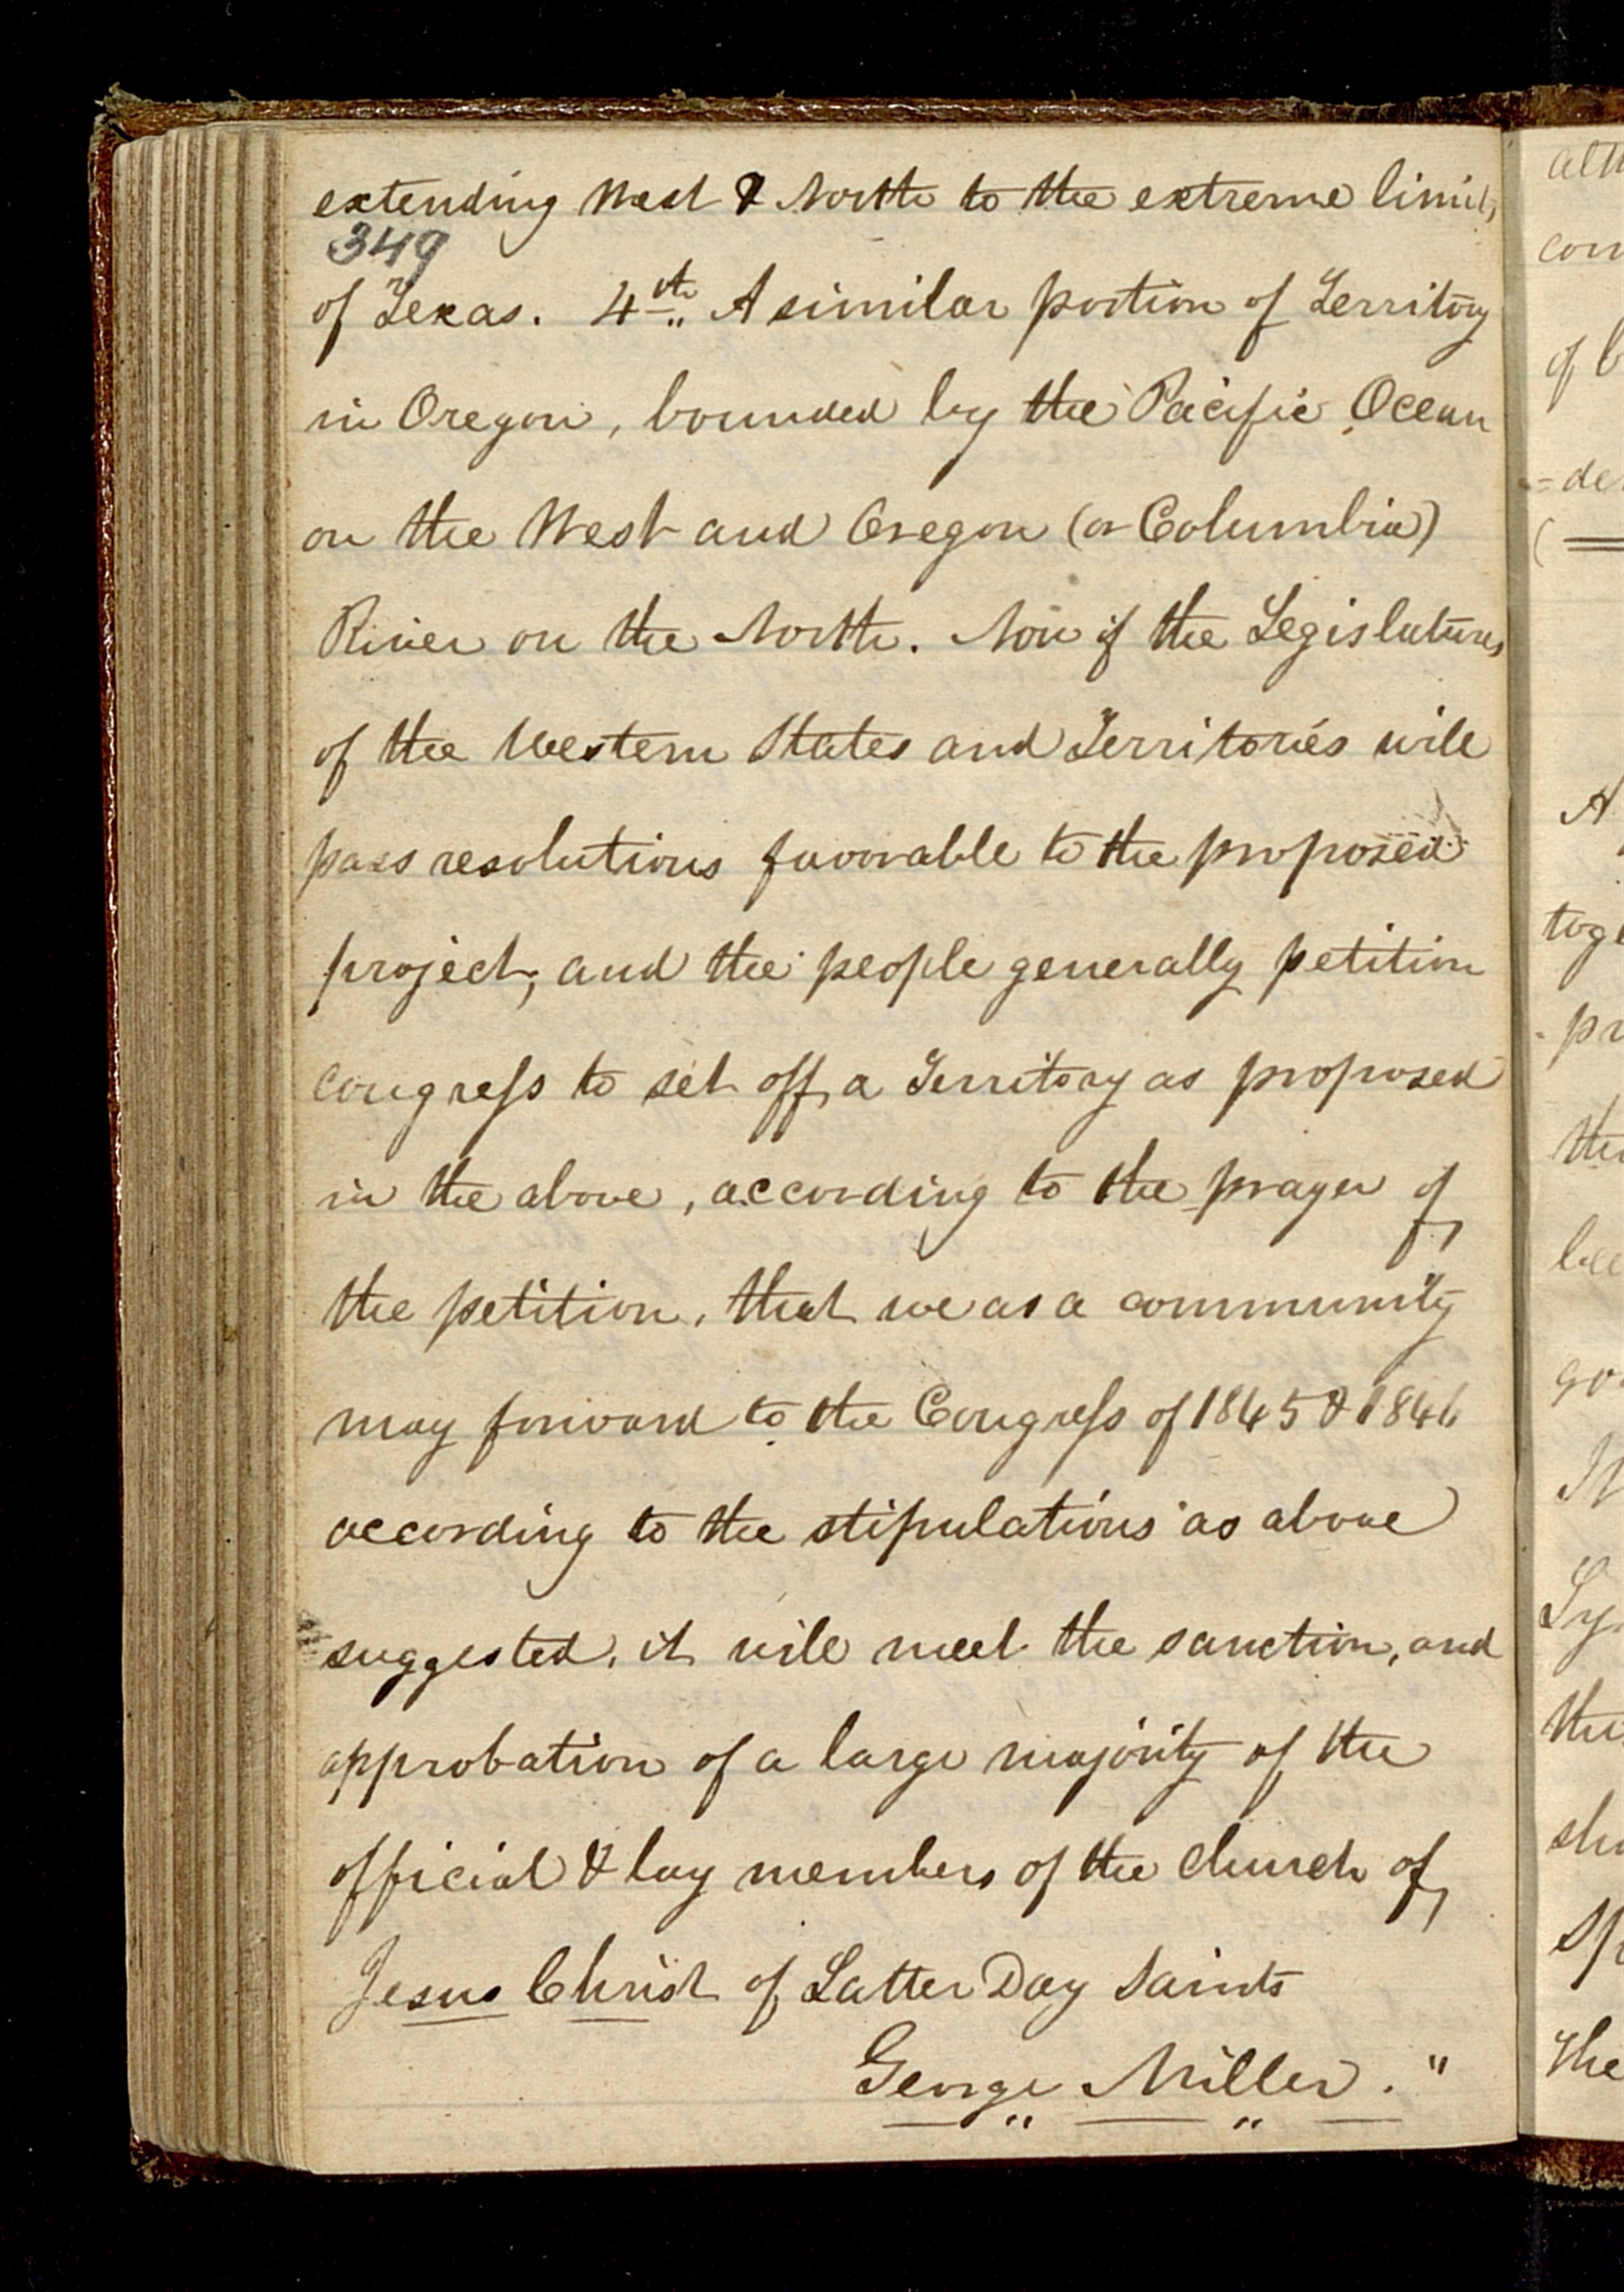 extending West & North to the extreme limits
349
of Texas. 4th A similar portion of Territory
in Oregon, bounded by the Pacific Ocean
on the West and Oregon (or Columbia)
River on the North. Now if the Legislatures
of the Western States and Territories will
pass resolutions favorable to the proposed
project; and the people generally petition
Congress to set off a Territory as proposed
in the above, according to the prayer of
the petition, that we as a community
may forward to the Congress of 1845 & 1846
according to the stipulations as above
suggested, it will meet the sanction, and
approbation of a large majority of the
official & lay members of the church of
Jesus Christ of Latter Day Saints
George Miller."